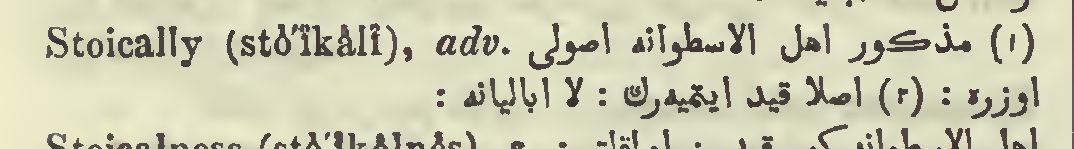 Stoically (stŏ′ĭkălĭ), adv. (١) مذكور اهل الاسطوانه اصولى
اوزره : (٢) اصلا قيد ايتميهرك : لا اباليانه :